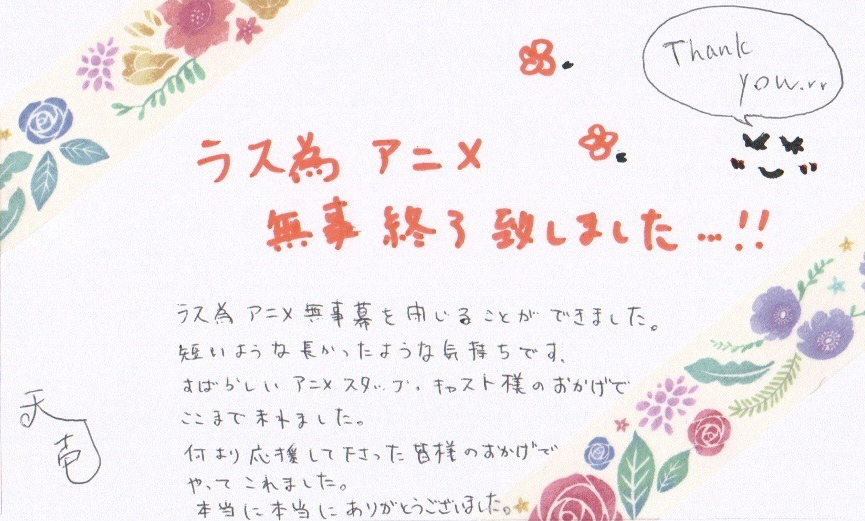 Thank
you...
ラス為 アニメ
無事 終了 致しました…!!
ラス為 アニメ 無事幕を閉じることができました。
短いような長かったような気持ちです、
すばらしい アニメ スタッフ、キャスト様のおかげで
ここまで来れました。
何より応援して下さった皆様のおかげで
やって これました。
本当に本当にありがとうございました。
天壱